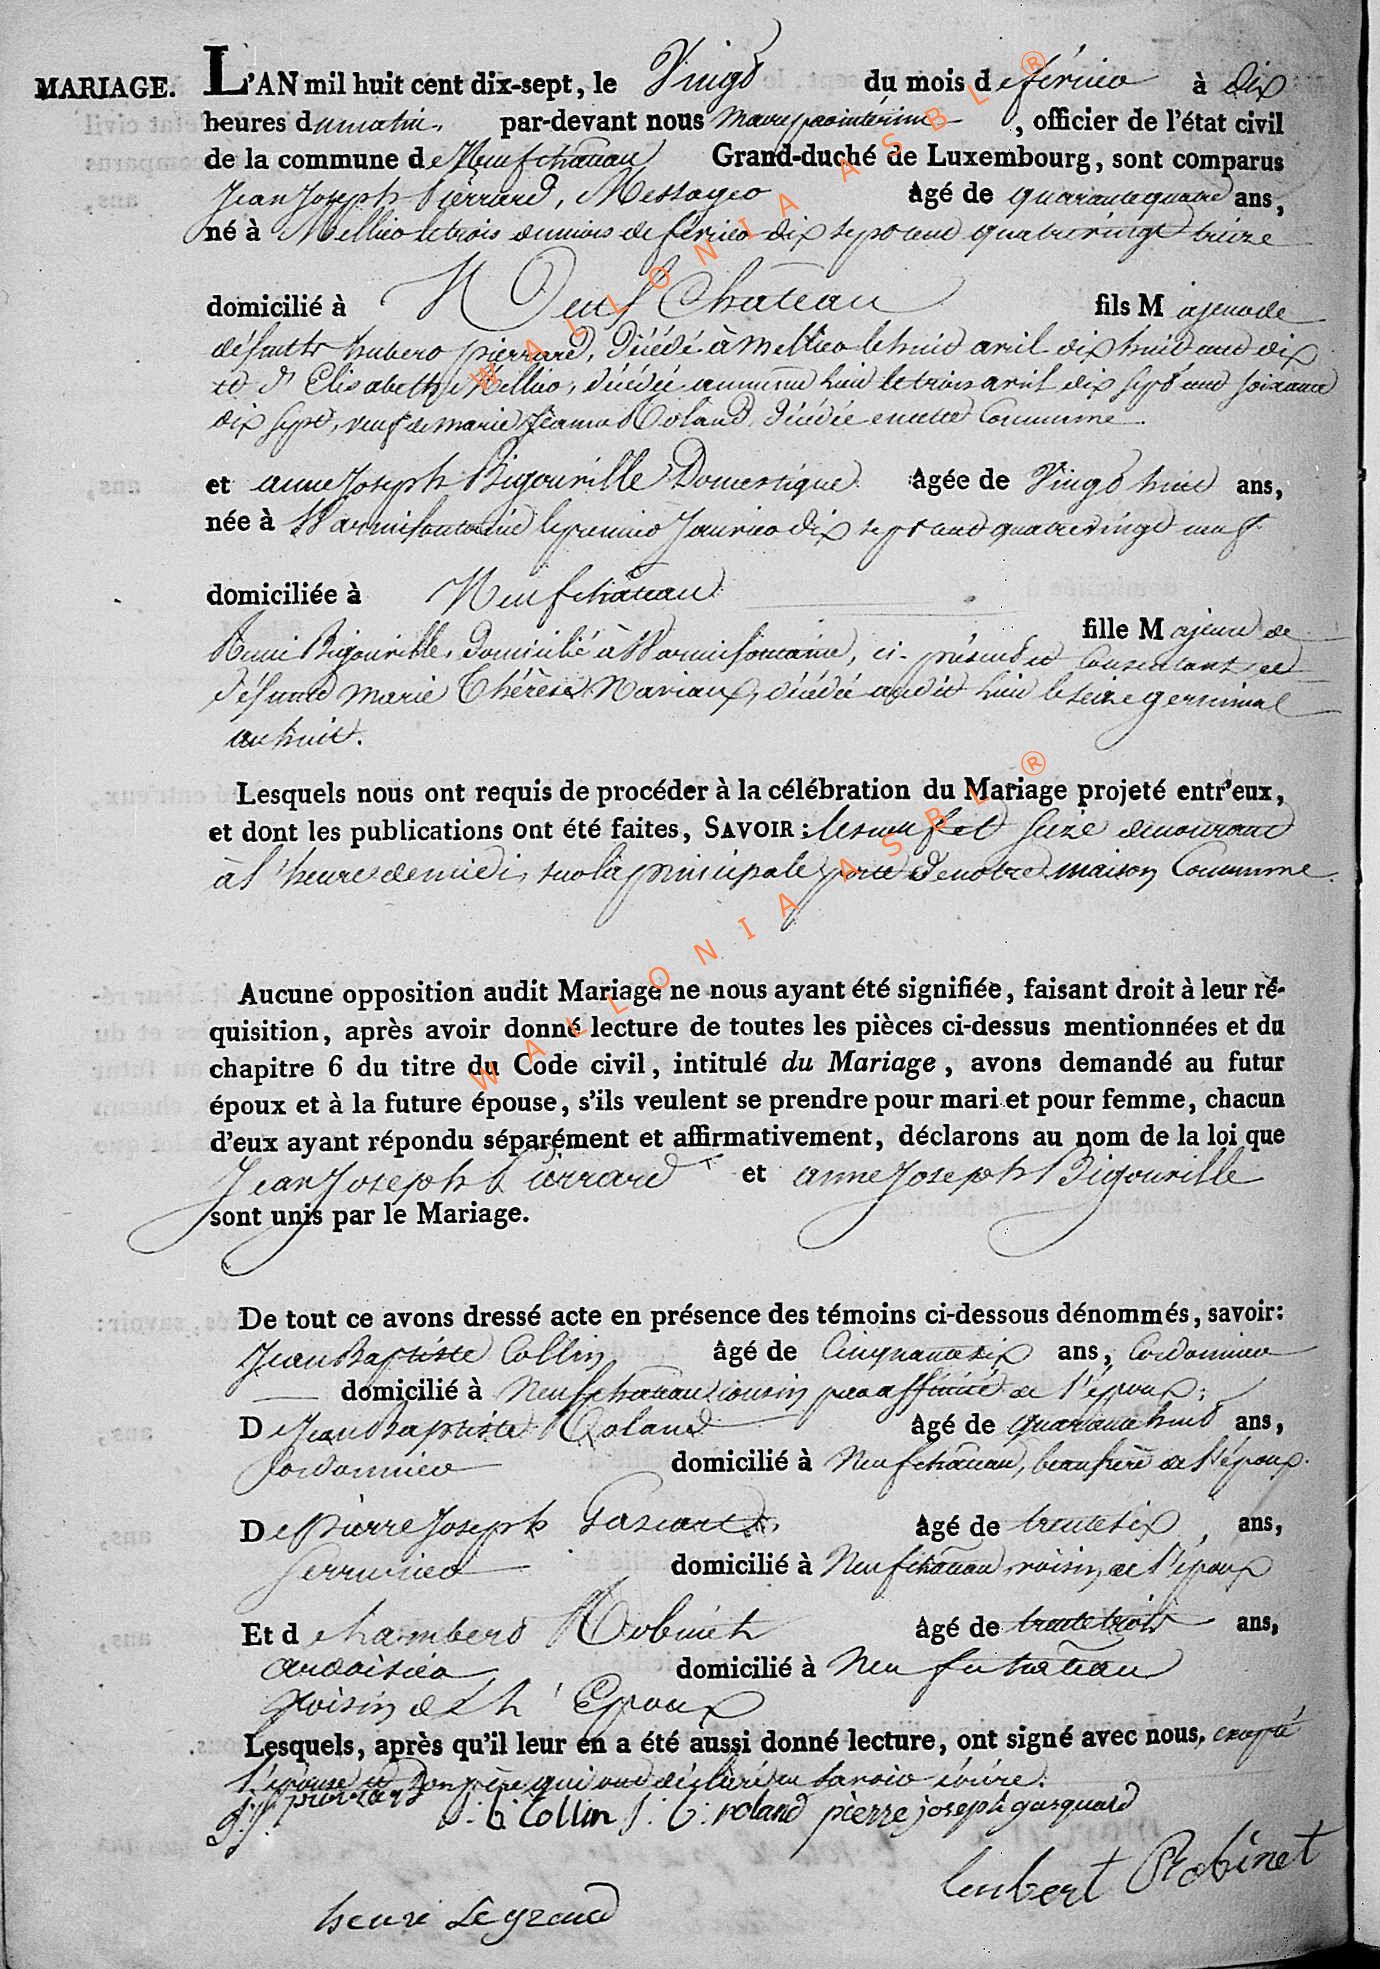 MARIAGE. L'AN mil huit cent dix-sept, le Vingt du mois de février à dix
heures du matin, par-devant nous maire par intérim, officier de l'état civil
de la commune de Neufchateau Grand-duché de Luxembourg, sont comparus
Jean Joseph Pierrard, Messager Agé de quarante quatre ans,
né à Mellier le trois du mois de février dix sept cent quatre vingt treize
domicilié à Neufchateau fils Majeur de
défunts hubert pierrard, décédé à Mellier le huit avril dix huit cent dix
et d'Elisabeth Mellier, décédée au même lieu le trois avril dix sept cent soixante
dix sept, veuf de marie Jeanne Roland, décédée en cette Commune.
et anne Joseph Bigonville Domestique Agée de Vingt huit ans,
née à Warmifontaine le premier Janvier dix sept cent quatre vingt neuf
domiciliée à Neufchateau
fille Majeure de
Remi Bigonville, Domicilié à Warmifontaine, ci-présent et Consentant et de
défunte marie Thérèse Naviaux, décédée audit lieu le seize germinal
an huit.
Lesquels nous ont requis de procéder à la célébration du Mariage projeté entr'eux,
et dont les publications ont été faites, SAVOIR: les neuf et seize du courant
à l'heure de midi, sur la principale porte de notre maison Commune.
Aucune opposition audit Mariage ne nous ayant été signifiée, faisant droit à leur ré-
quisition, après avoir donné lecture de toutes les pièces ci-dessus mentionnées et du
chapitre 6 du titre du Code civil, intitulé du Mariage, avons demandé au futur
époux et à la future épouse, s'ils veulent se prendre pour mari et pour femme, chacun
d'eux ayant répondu séparément et affirmativement, déclarons au nom de la loi que
Jean Joseph Pierrard et anne Joseph Bigonville
sont unis par le Mariage.
De tout ce avons dressé acte en présence des témoins ci-dessous dénommés, savoir:
Jean Baptiste Collin âgé de Cinquante six ans, Cordonnier
domicilié à Neufchateau cousin par affinité de l'époux;
De Jean Baptiste Roland âgé de quarante huit ans,
Cordonnier domicilié à Neufchateau, beau frère de l'époux.
De Pierre Joseph Gascard âgé de trente six, ans,
Serrurier domicilié à Neufchateau, voisin de l'époux
Et de hambert Robinet âgé de trente trois ans,
ardoisier domicilié à Neufchateau
voisin de l'Epoux
Lesquels, après qu'il leur en a été aussi donné lecture, ont signé avec nous, excepté
l'épouse et son père qui ont déclaré ne savoir écrire.
j: j: pierrard J: b: Collin J: b: roland pierre joseph gasquard
lambert Robinet
henri Legrand
WALLONIA ASBL ®
WALLONIA ASBL ®